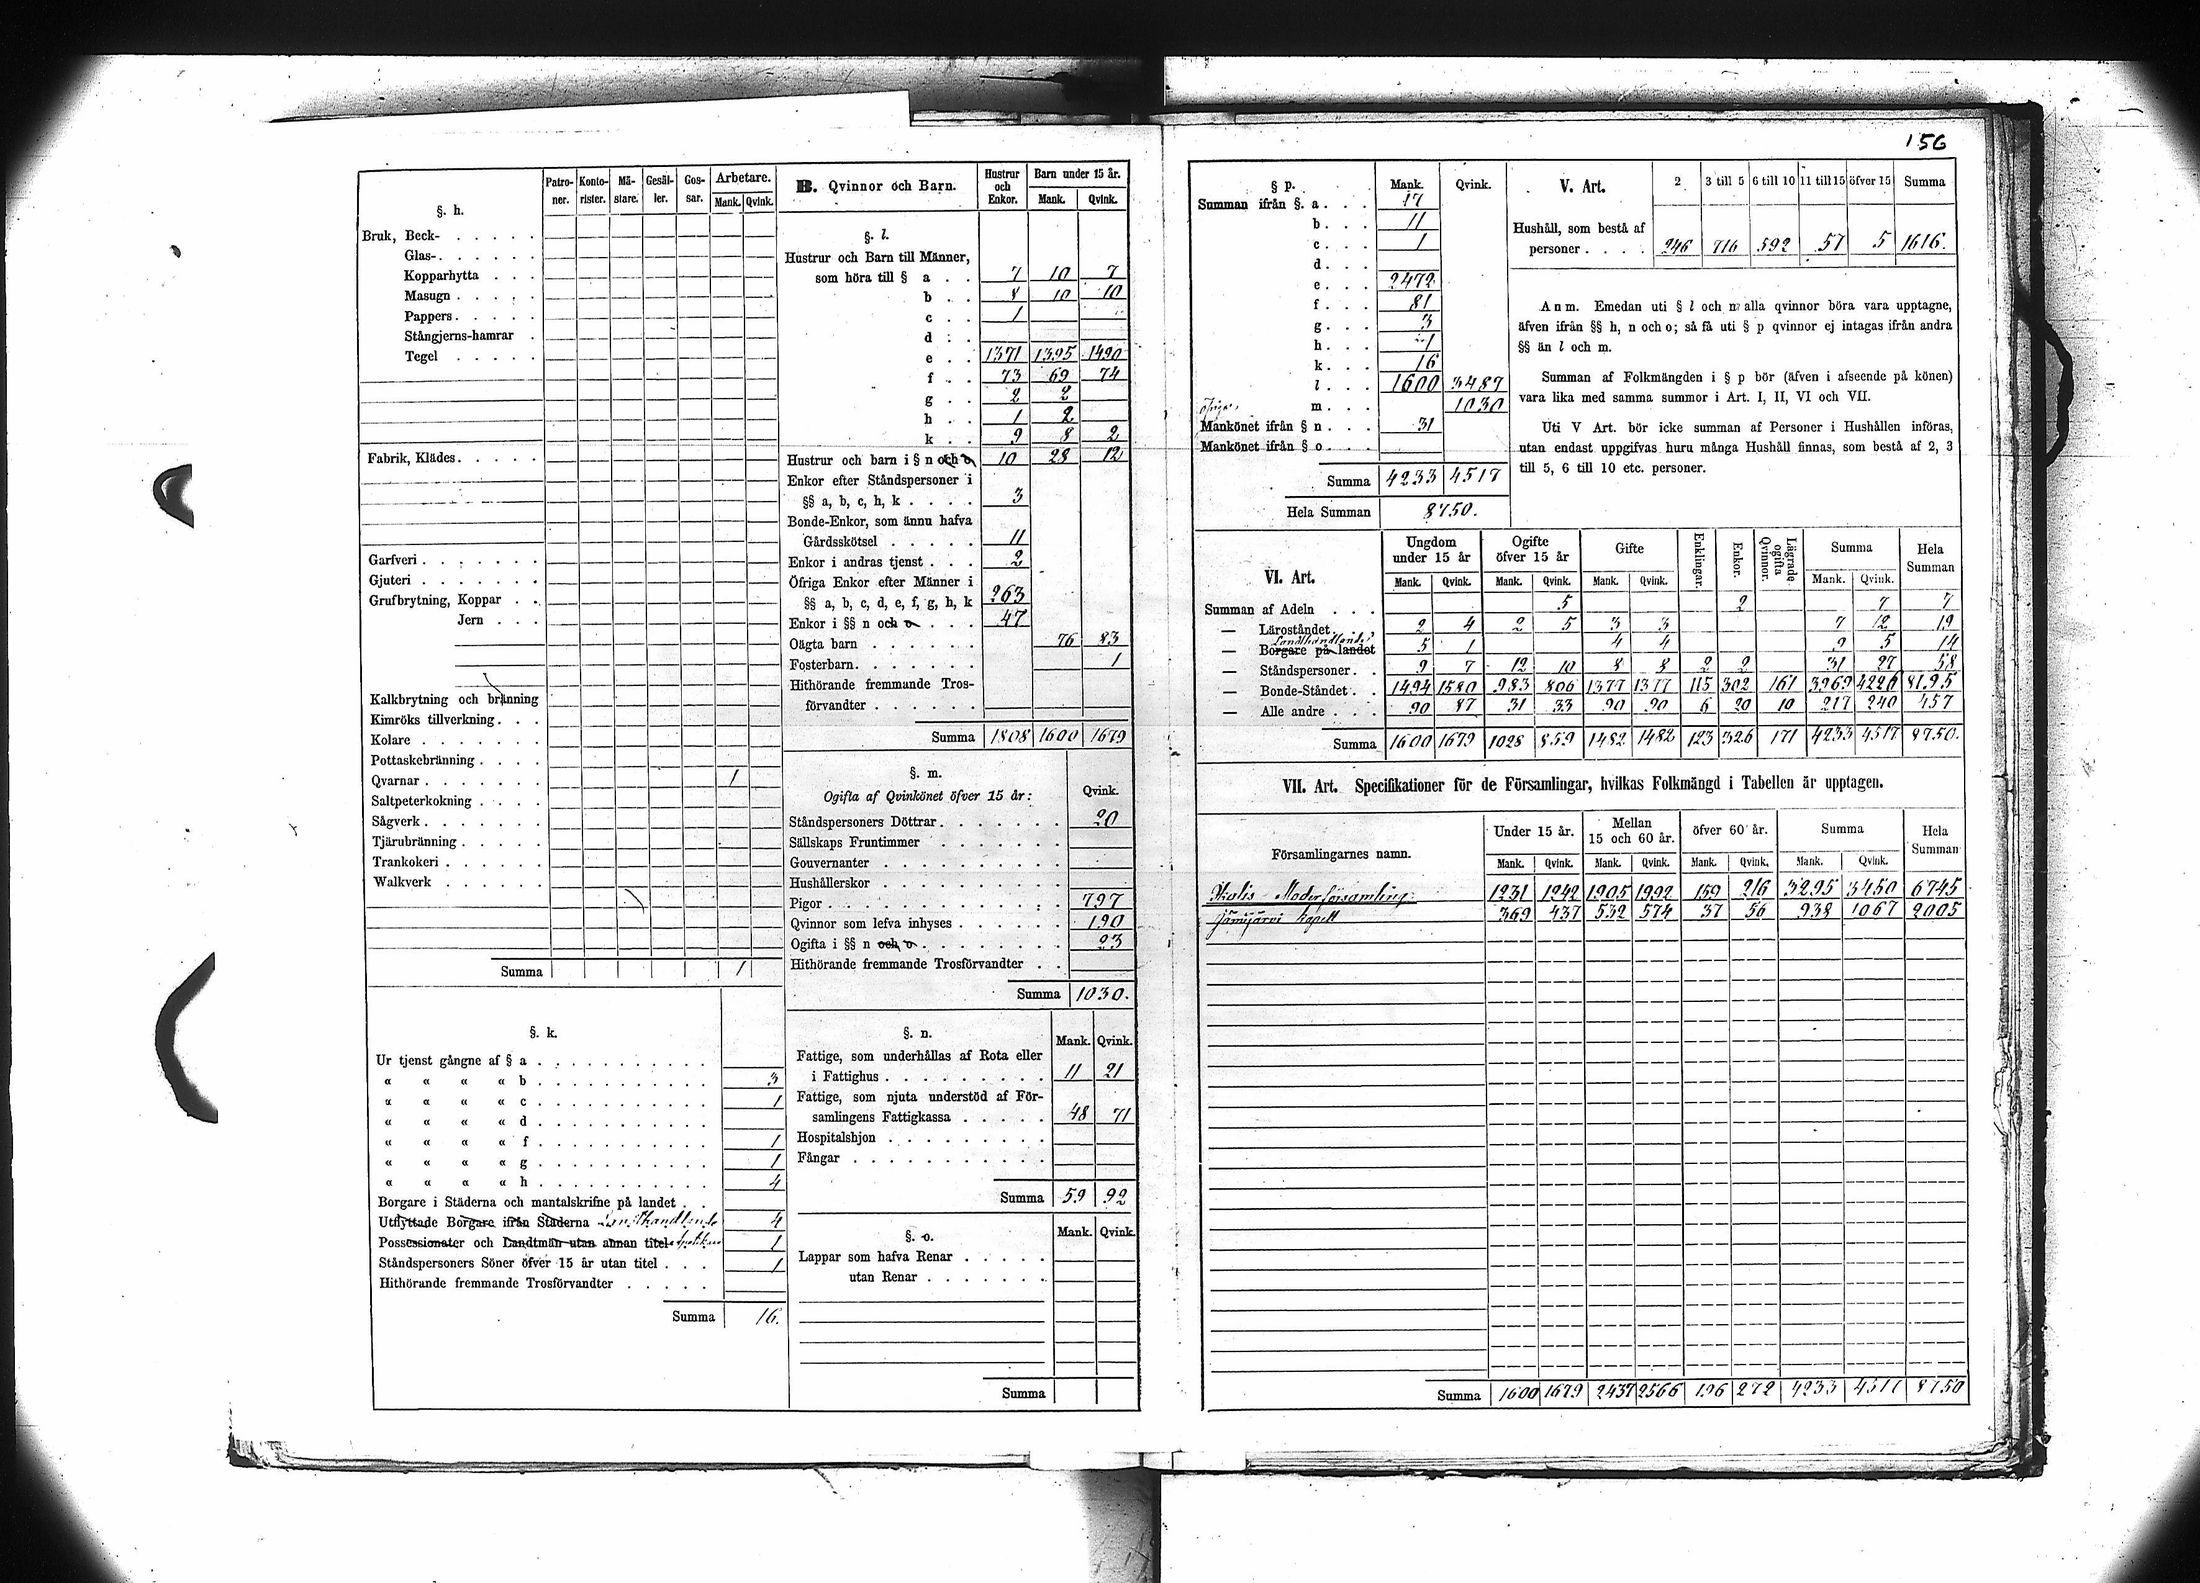 156
§. h.
Patroner. Kontorister. Mästare. Gesäller. Gossar. Arbetare. Mank. Qvink.
Bruk, Beck-
Glas-
Kopparhytta
Masugn
Pappers
Stångjerns-hamrar
Tegel
Fabrik, Klädes
Garfveri
Gjuteri
Grufbrytning, Koppar
Jern
Kalkbrytning och bränning
Kimröks tillverkning
Kolare
Pottaskebränning
Qvarnar 1
Saltpeterkokning
Sågverk
Tjärubränning
Trankokeri
Walkverk
Summa 1
§. k.
Ur tjenst gångne af § a
« « « « b 3
« « « « c 1
« « « « d
« « « « f 1
« « « « g 1
« « « « h 4
Borgare i Städerna och mantalskrifne på landet
Utflyttade Borgare ifrån Städerna Landthandlande 4
Possessionater och Landtmän utan annan titel 1
Ståndspersoners Söner öfver 15 år utan titel 1
Hithörande fremmande Trosförvandter
Summa 16.
B. Qvinnor och Barn. Hustrur och Enkor. Barn under 15 år. Mank. Qvink.
§. l.
Hustrur och Barn till Männer,
som höra till § a 7 10 7
b 8 10 10
c 1
d
e 1371 1395 1490
f 73 69 74
g 2 2
h 1 2
k 9 8 2
Hustrur och barn i § n och o 10 28 12
Enkor efter Ståndspersoner i
§§ a, b, c, h, k 3
Bonde-Enkor, som ännu hafva
Gårdsskötsel 11
Enkor i andras tjenst 2
Öfriga Enkor efter Männer i
§§ a, b, c, d, e, f, g, h, k 263
Enkor i §§ n och o 47
Oägta barn 76 83
Fosterbarn 1
Hithörande fremmande Tros-
förvandter
Summa 1808 1600 1679
§. m.
Ogifta af Qvinkönet öfver 15 år: Qvink.
Ståndspersoners Döttrar 20
Sällskaps Fruntimmer
Gouvernanter
Hushållerskor
Pigor 797
Qvinnor som lefva inhyses 190
Ogifta i §§ n och o 23
Hithörande fremmande Trosförvandter
Summa 1030.
§. n. Mank. Qvink.
Fattige, som underhållas af Rota eller
i Fattighus 11 21
Fattige, som njuta understöd af För-
samlingens Fattigkassa 48 71
Hospitalshjon
Fångar
Summa 59 92
§. o. Mank. Qvink.
Lappar som hafva Renar
utan Renar
Summa
§ p. Mank. Qvink.
Summan ifrån §. a 17
b 11
c 1
d
e 2472
f 81
g 3
h 1
k 16
l 1600 3487
m 1030
öfriga
Mankönet ifrån § n 31
Mankönet ifrån § o
Summa 4233 4517
Hela Summan 8750.
V. Art. 2 3 till 5 6 till 10 11 till 15 öfver 15 Summa
Hushåll, som bestå af
personer 246 716 592 57 5 1616.
Anm. Emedan uti § l och m alla qvinnor böra vara upptagne,
äfven ifrån §§ h, n och o; så få uti § p qvinnor ej intagas ifrån andra
§§ än l och m.
Summan af Folkmängden i § p bör (äfven i afseende på könen)
vara lika med samma summor i Art. I, II, VI och VII.
Uti V Art. bör icke summan af Personer i Hushållen införas,
utan endast uppgifvas huru många Hushåll finnas, som bestå af 2, 3
till 5, 6 till 10 etc. personer.
VI. Art. Ungdom under 15 år Ogifte öfver 15 år Gifte Enklingar. Enkor. Lägrade ogifta Qvinnor. Summa Hela Summan
Mank. Qvink. Mank. Qvink. Mank. Qvink. Mank. Qvink.
Summan af Adeln 5 2 7 7
— Läroståndet 2 4 2 5 3 3 7 12 19
Landthandlande
— Borgare på landet 5 1 4 4 9 5 14
— Ståndspersoner 9 7 12 10 8 8 2 2 31 27 58
— Bonde-Ståndet 1494 1580 983 806 1377 1377 115 302 161 3969 4226 8195
— Alle andre 90 87 31 33 90 90 6 20 10 217 240 457
Summa 1600 1679 1028 859 1482 1482 123 326 171 4233 4517 8750.
VII. Art. Specifikationer för de Församlingar, hvilkas Folkmängd i Tabellen är upptagen.
Församlingarnes namn. Under 15 år. Mellan 15 och 60 år. öfver 60 år. Summa Hela Summan
Mank. Qvink. Mank. Qvink. Mank. Qvink. Mank. Qvink.
Ikalis Moderförsamling 1231 1242 1905 1992 159 216 3295 3450 6745
Jämijärvi kapell 369 437 532 574 37 56 938 1067 2005
Summa 1600 1679 2437 2566 196 272 4233 4517 8750